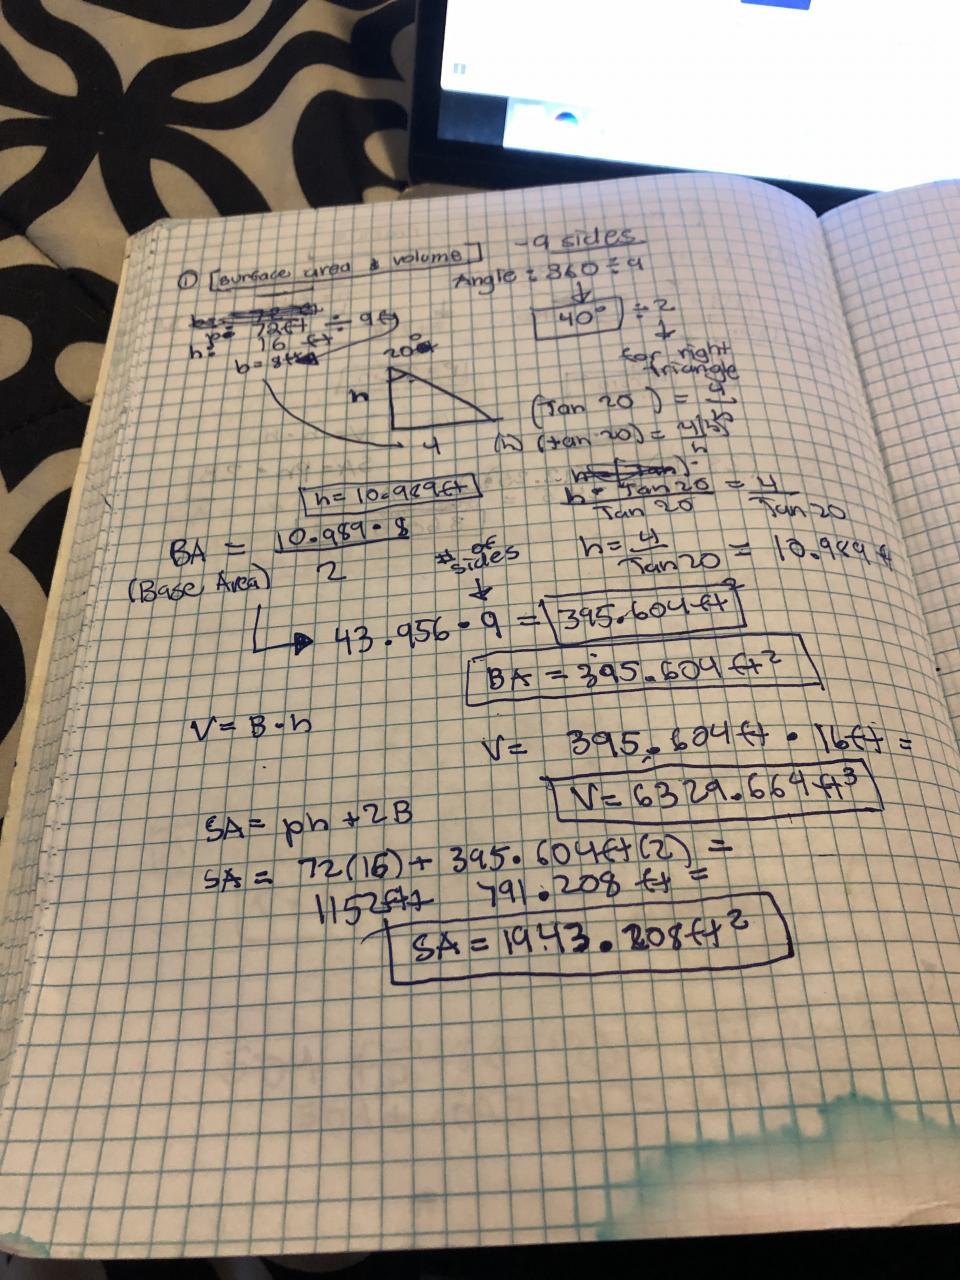 ① [surface area & volume]
-9 sides
Angle = 360 ÷ 9
↓
40° ÷ 2
↓
for right
triangle
p= 72ft ÷ 9ft
h= 16 ft
b= 8ft
20°
h
4
(Tan 20) =
(h) (tan 20) =
h • Tan 20 = 4
Tan 20 Tan 20
h = 4 = 10.989 ft
Tan 20
h = 10.989ft
BA = 10.989 • 8
(Base Area) 2
# of
sides
↓
43.956 • 9 = 395.604 ft²
BA = 395.604 ft²
V = B • h
V = 395.604 ft • 16 ft =
V = 6329.664 ft³
SA = ph + 2B
SA = 72(16) + 395.604 ft (2) =
1152ft + 791.208 ft =
SA = 1943.208 ft²